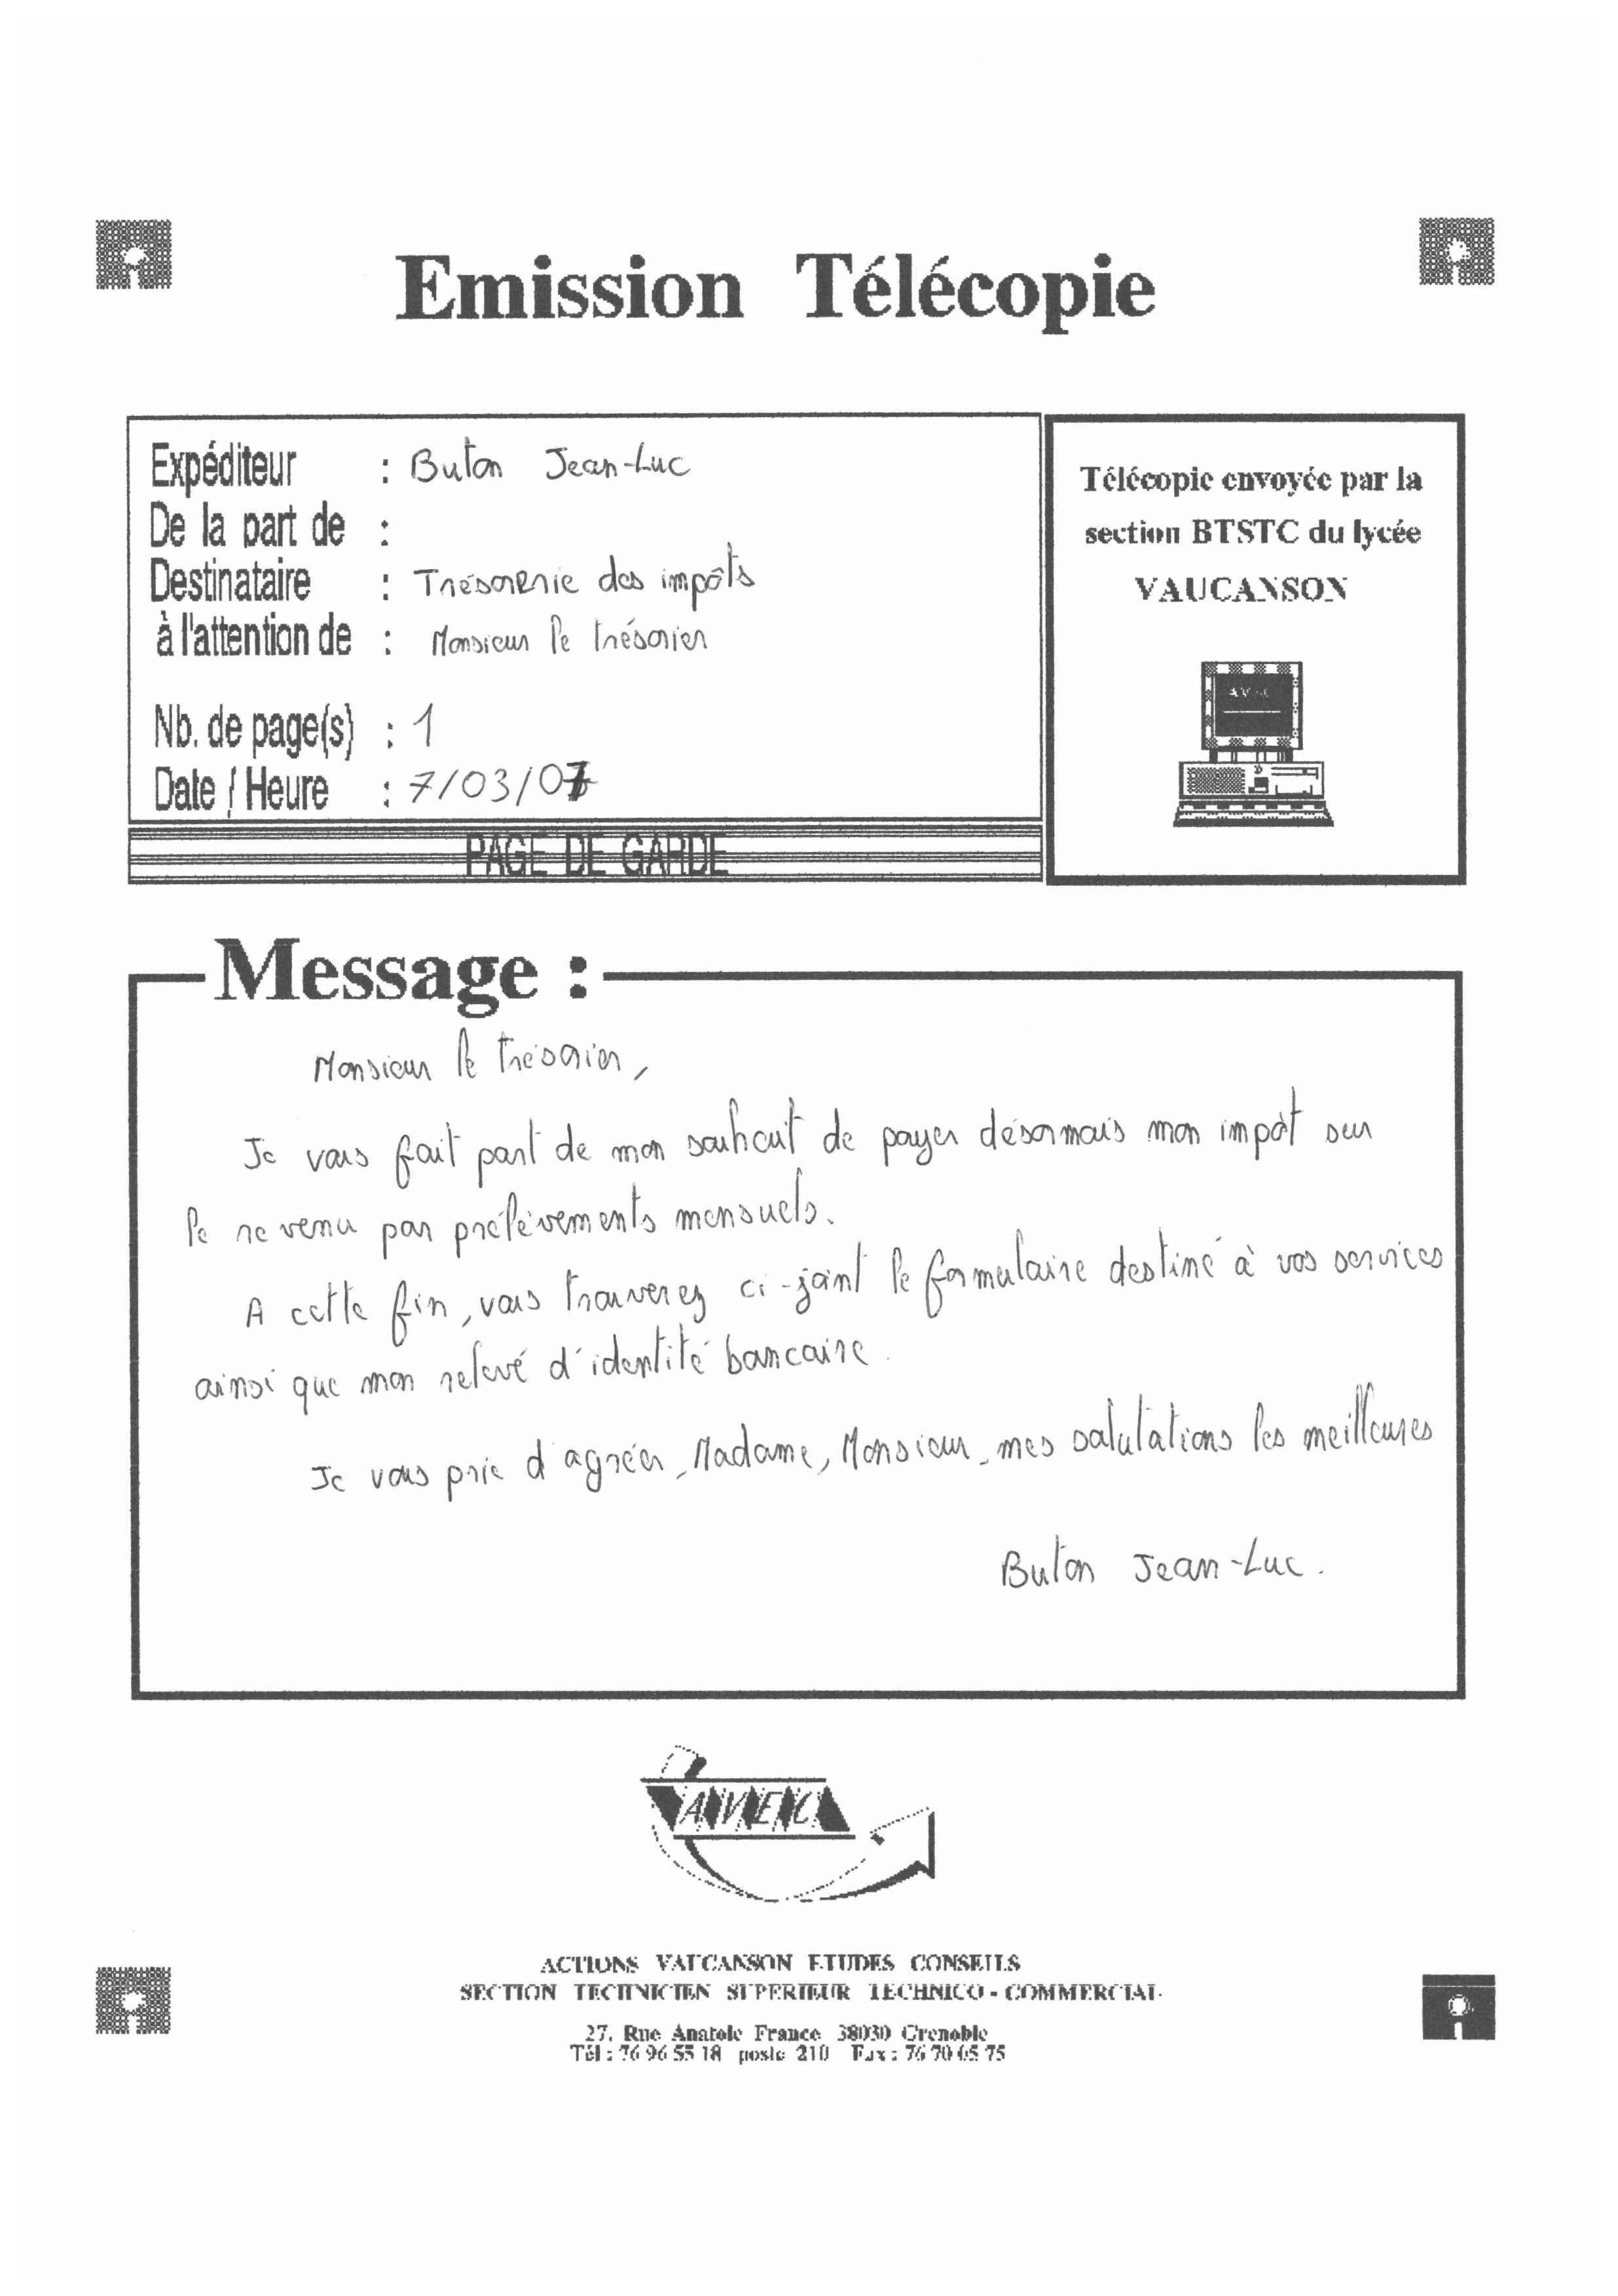 Emission Télécopie
Expéditeur : Buton Jean-Luc
De la part de :
Destinataire : Trésorerie des impôts
à l'attention de : Monsieur le trésorier
Nb. de page(s) : 1
Date / Heure : 7/03/07
PAGE DE GARDE
Télécopie envoyée par la
section BTSTC du lycée
VAUCANSON
AVEC
Message :
Monsieur le trésorier,
Je vous fait part de mon souhait de payer désormais mon impôt sur
le revenu par prélèvements mensuels.
A cette fin, vous trouverez ci-joint le formulaire destiné à vos services
ainsi que mon relevé d'identité bancaire.
Je vous prie d'agréer, Madame, Monsieur, mes salutations les meilleures
Buton Jean-Luc.
AVEC
ACTIONS VAUCANSON ETUDES CONSEILS
SECTION TECHNICIEN SUPERIEUR TECHNICO - COMMERCIAL
27, Rue Anatole France 38030 Grenoble
Tél : 76 96 55 18 poste 210 Fax : 76 70 05 75